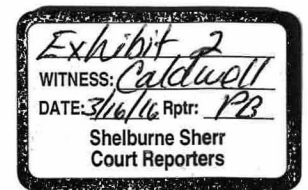 Exhibit 2
WITNESS: Caldwell
DATE: 3/16/16 Rptr: PB
Shelburne Sherr
Court Reporters